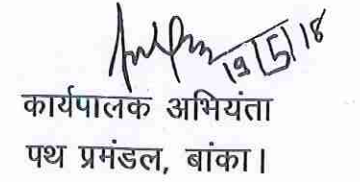 19/5/18
कार्यपालक अभियंता
पथ प्रमंडल, बांका।